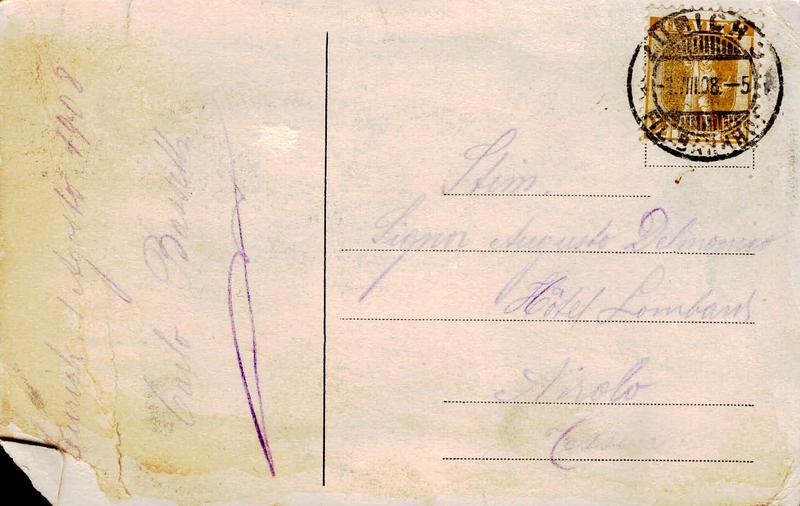 ZÜRICH
VIII.08.—5
FIL. BAHNHOF
Stim.
Signor Augusto Delmonico
Hôtel Lombardi
Airolo
Zurich, 1 Agosto 1908
Carlo